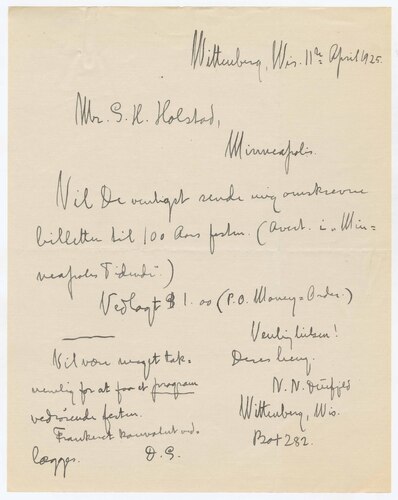 Wittenberg, Wis. 11te April 1925.
Mr. S. H. Holstad,
Minneapolis.
Vil De venligst sende mig omskrevne
billetter til 100 Aars festen. (Avert. i "Min-
neapolis Tidende".)
Vedlagt $1.00 (P.O. Money-Order.)
Venlig hilsen!
Deres
N. N.
Wittenberg, Wis.
Box 282.
Vil være meget tak-
nemlig for at faa et program
vedrørende festen.
Frankeret konvolut ved-
lægges. D. S.